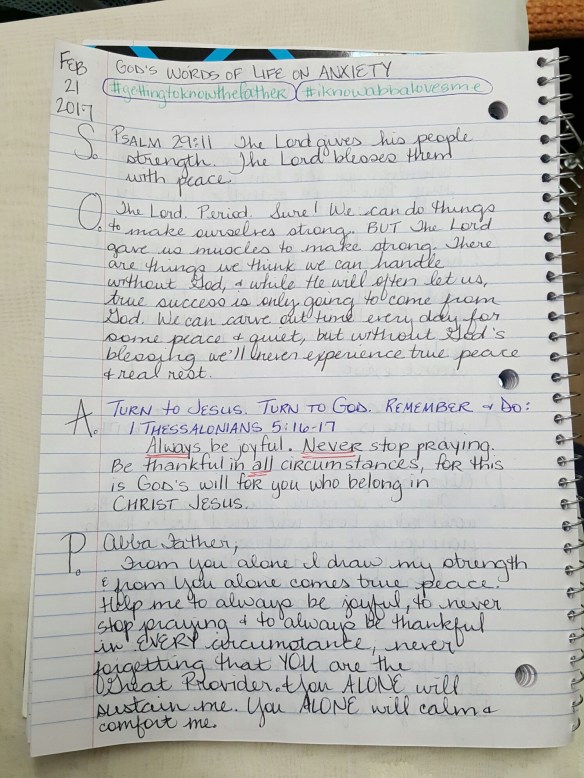 FEB
21
2017
GOD'S WORDS OF LIFE ON ANXIETY
#gettingtoknowthefather #iknowabbalovesme
S. PSALM 29:11 The Lord gives his people
strength. The Lord blesses them
with peace.
O. The Lord. Period. Sure! We can do things
to make ourselves strong. BUT The Lord
gave us muscles to make strong. There
are things we think we can handle
without God, & while He will often let us,
true success is only going to come from
God. We can carve out time every day for
some peace & quiet, but without God's
blessing we'll never experience true peace
& real rest.
A. TURN TO JESUS. TURN TO GOD. REMEMBER & DO:
1 THESSALONIANS 5:16-17
Always be joyful. Never stop praying.
Be thankful in all circumstances, for this
is GOD'S will FOR you who belong in
CHRIST JESUS.
P. Abba Father,
From you alone I draw my strength
& from you alone comes true peace.
Help me to always be joyful, to never
stop praying & to always be thankful
in EVERY circumstance, never
forgetting that YOU are the
Great Provider. You ALONE will
sustain me. You ALONE will calm &
comfort me.